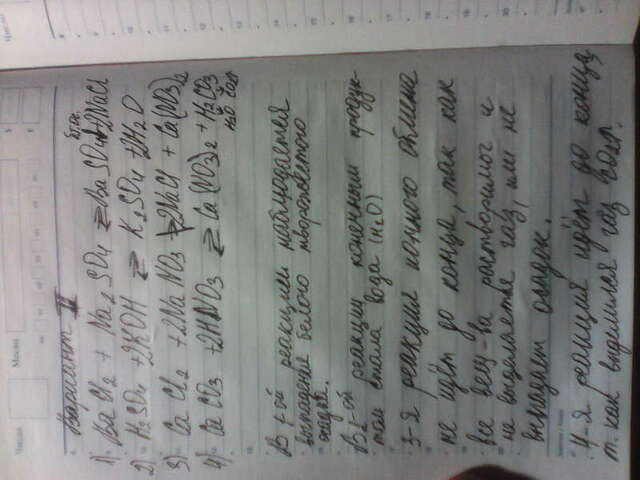 Вариант II
1) BaCl2 + Na2SO4 ⇄ BaSO4↓ + 2NaCl
2) H2SO4 + 2KOH ⇄ K2SO4 + 2H2O
3) CaCl2 + 2NaNO3 2NaCl + Ca(NO3)2
4) CaCO3 + 2HNO3 ⇄ Ca(NO3)2 + H2CO3
H2O CO2
В 1-ой реакции наблюдается
выпадение белого творожистого
осадка.
В 2-ой реакции конечным продук-
том стала вода (H2O)
3-я реакция ионного обмена
не идёт до конца, так как
все вещ-ва растворимы и
не выделяется газ, или не
выпадает осадок.
4-я реакция идёт до конца,
т. как выделился газ
Число
Месяц